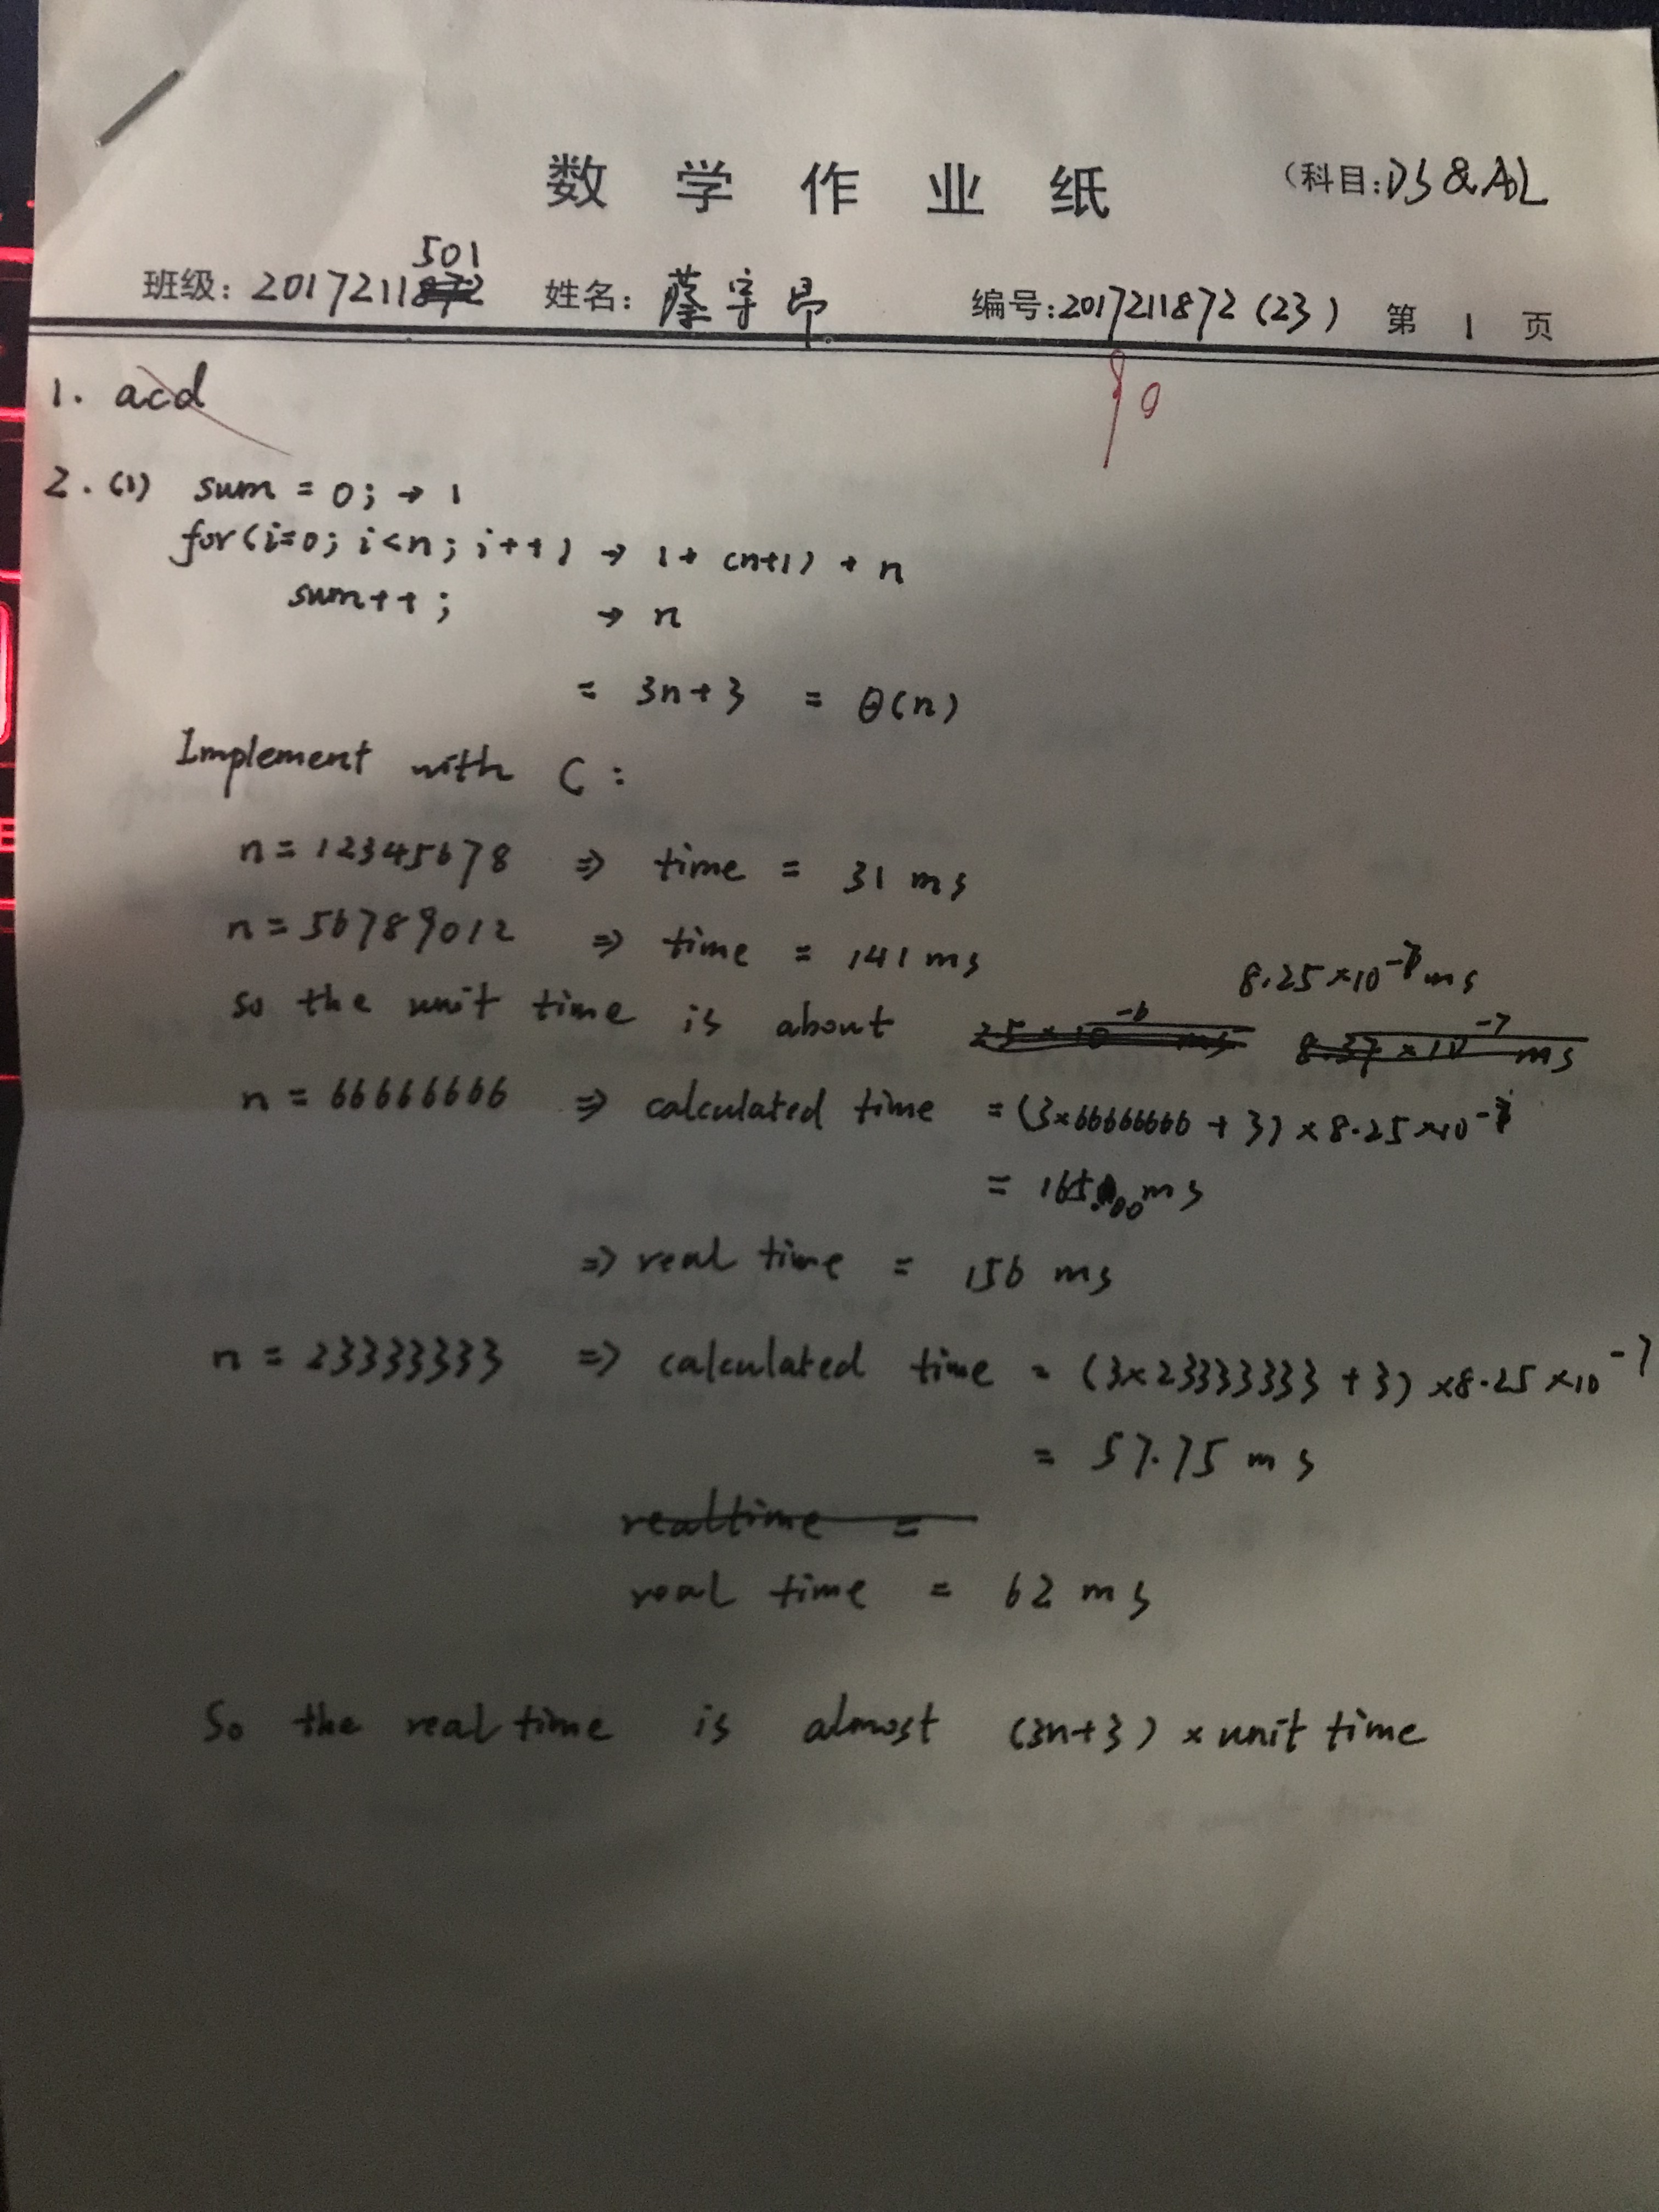 数 学 作 业 纸 (科目:DS & AL
501
班级: 2017211 姓名: 蔡宇昂 编号:2017211872 (23) 第 1 页
90
1. acd
2. (1) sum = 0; → 1
for(i=0; i<n; i++) → 1 + (n+1) + n
sum++; → n
= 3n+3 = θ(n)
Implement with C :
n = 12345678 ⇒ time = 31 ms
n = 56789012 ⇒ time = 141 ms
8.25×10⁻⁷ms
so the unit time is about
n = 66666666 ⇒ calculated time = (3×66666666 + 3) × 8.25×10⁻⁷
= 165.00 ms
⇒ real time = 156 ms
n = 23333333 ⇒ calculated time = (3×23333333 + 3) ×8.25 ×10⁻⁷
= 57.75 ms
realtime =
real time = 62 ms
So the real time is almost (3n+3) × unit time